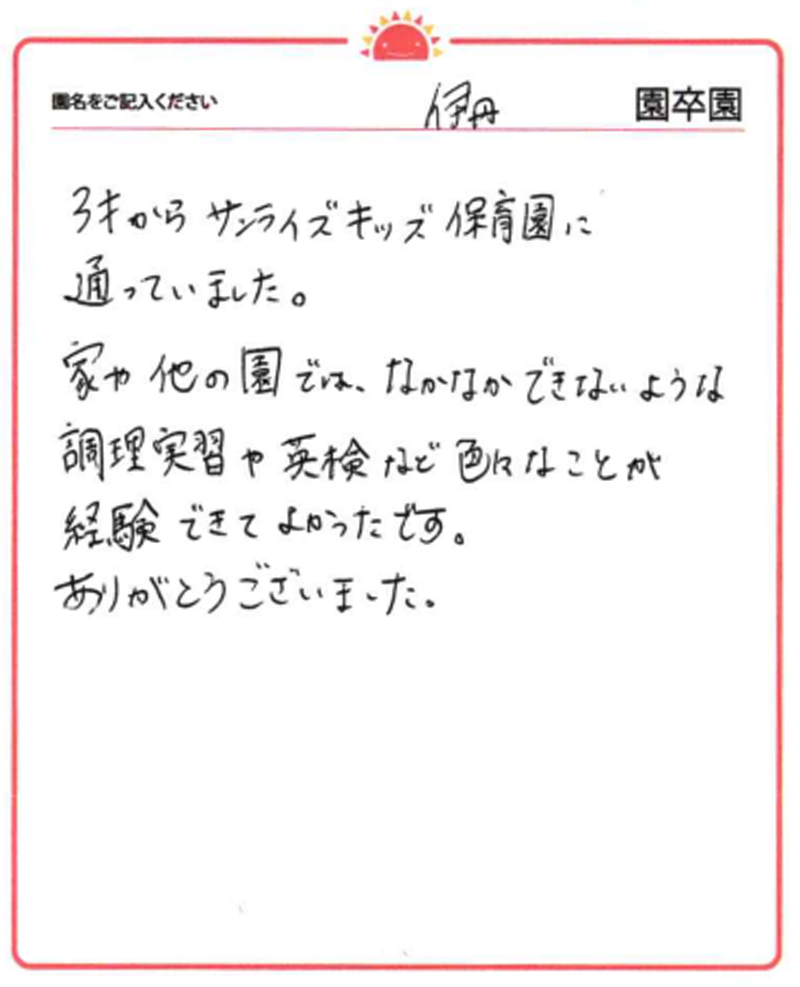 園名をご記入ください 伊丹 園卒園
3才から サンライズキッズ保育園に
通っていました。
家や他の園では、なかなかできないような
調理実習や英検など色々なことが
経験できてよかったです。
ありがとうございました。